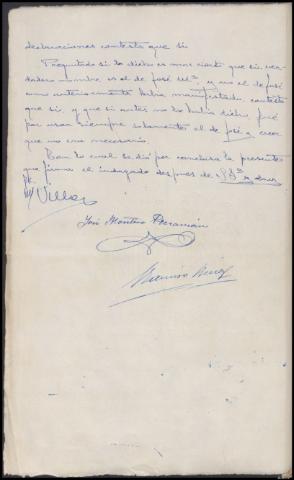 declaraciones contesta que si
Preguntado si lo dicho es mas cierto que su ver-
dadero nombre es el de José Mª, y no el de José
como anteriormente había manifestado, contesta
que si, y que si antes no lo había dicho, fué
por usar siempre solamente el de José y creer
que no era necesario.
Con lo cual se dió por conclusa la presente
que firma el indagado despues de S.Sª
Villa
José Montero